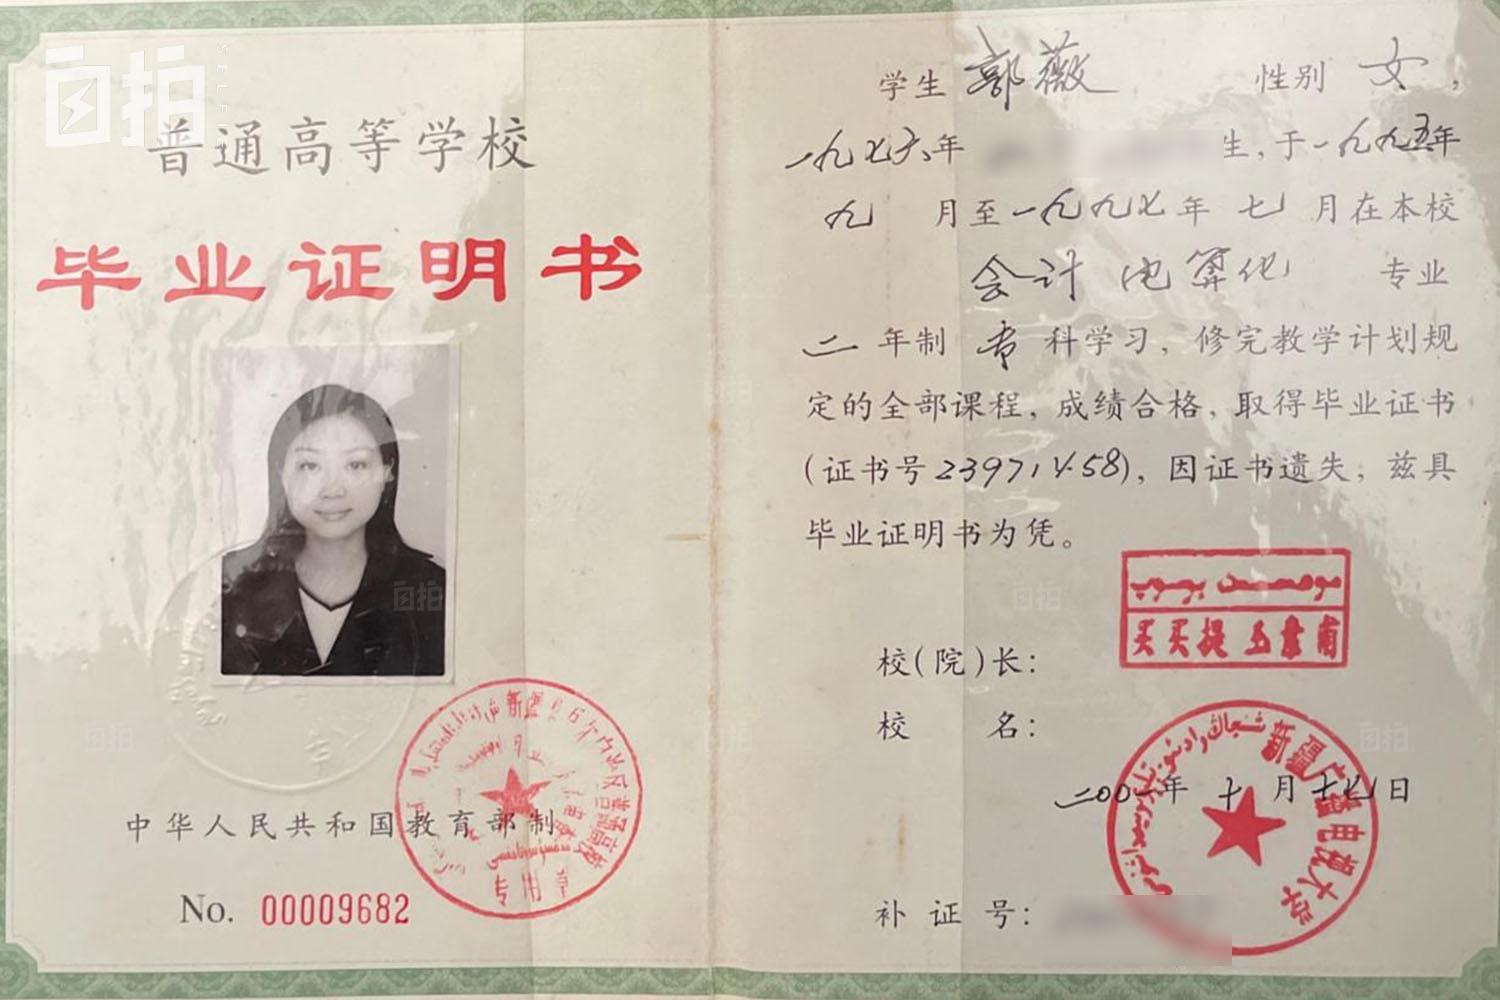 自拍
SELF
普通高等学校
毕业证明书
中华人民共和国教育部制
No. 00009682
专用章
学生 郭薇 性别 女，
一九七六年 生，于一九九五年
九 月至一九九七年 七 月在本校
会计电算化 专业
二 年制 专 科学习，修完教学计划规
定的全部课程，成绩合格，取得毕业证书
(证书号23971458)，因证书遗失，兹具
毕业证明书为凭。
校(院)长：
校 名：
新疆广播电视大学
二00一年 十 月 十七日
补 证 号：